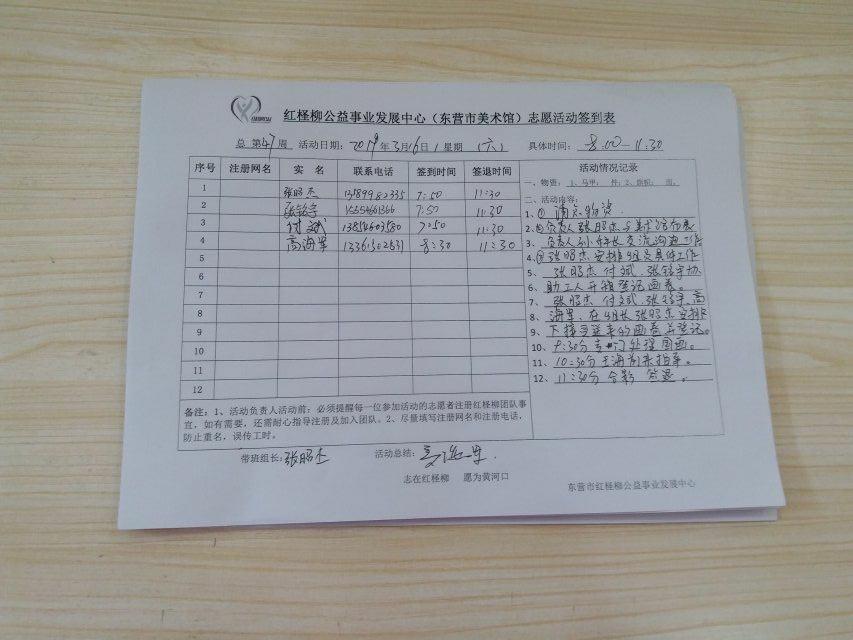 红柽柳公益事业发展中心（东营市美术馆）志愿活动签到表
总 第47周 活动日期：2019年3月16日（星期（六） 具体时间：8:00—11:30
序号 注册网名 实 名 联系电话 签到时间 签退时间
1 张昭杰 13789982335 7:50 11:30
2 张铭宇 7:50 11:30
3 付斌 13854603580 7:50 11:30
4 高海军 13361502631 8:30 11:30
5
6
7
8
9
10
11
12
活动情况记录
一、物资： 1、马甲： 件；2、旗帜： 面。
二、活动内容：
1、① 清点物资．
2、②负责人张昭杰与美术馆
3、负责人孙 长交流沟通工作
4、③张昭杰安排组员具体工作
5、张昭杰 付斌，张铭宇协
6、助工人开箱登记画卷。
7、张昭杰 付斌，张铭宇，高
8、海军，在组长张昭杰安排
9、下 画卷并登记。
10、9:30分专门处理国画。
11、10:30分王海 来指导。
12、11:30分合影 签退．
备注：1、活动负责人活动前：必须提醒每一位参加活动的志愿者注册红柽柳团队事
宜，如有需要，还需耐心指导注册及加入团队。2、尽量填写注册网名和注册电话，
防止重名，误传工时。
带班组长：张昭杰 活动总结：高海军．
志在红柽柳 愿为黄河口
东营市红柽柳公益事业发展中心